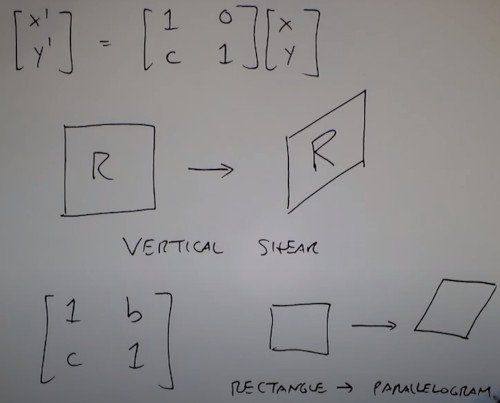 [x'] = [1 0][x]
[y'] [c 1][y]
R → R
VERTICAL SHEAR
[1 b]
[c 1]
→
RECTANGLE → PARALLELOGRAM